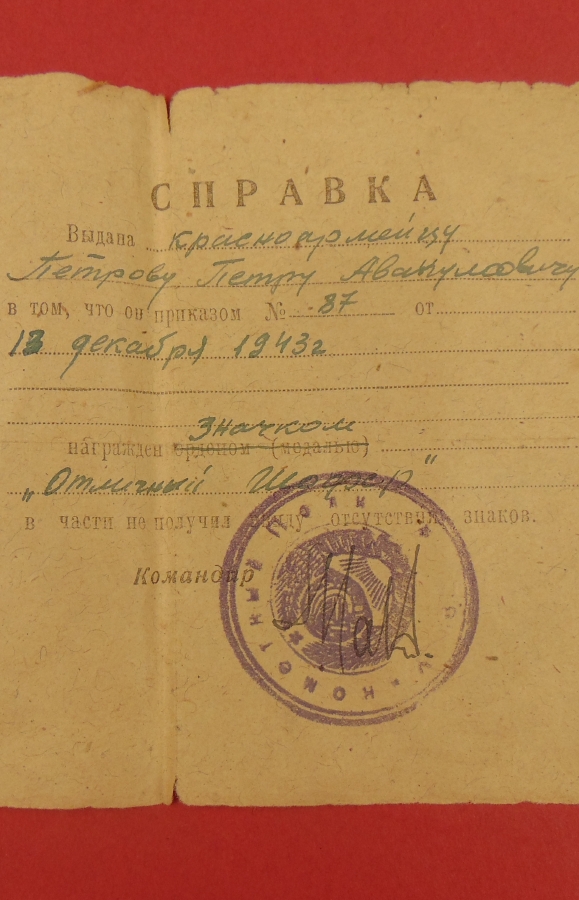 СПРАВКА
Выдана красноармейцу
Петрову Петру Авакумовичу
в том, что он приказом № 87 от
13 декабря 1943 г
значком
награжден орденом (медалью)
„Отличный Шофер"
в части не получил ввиду отсутствия знаков.
Командир